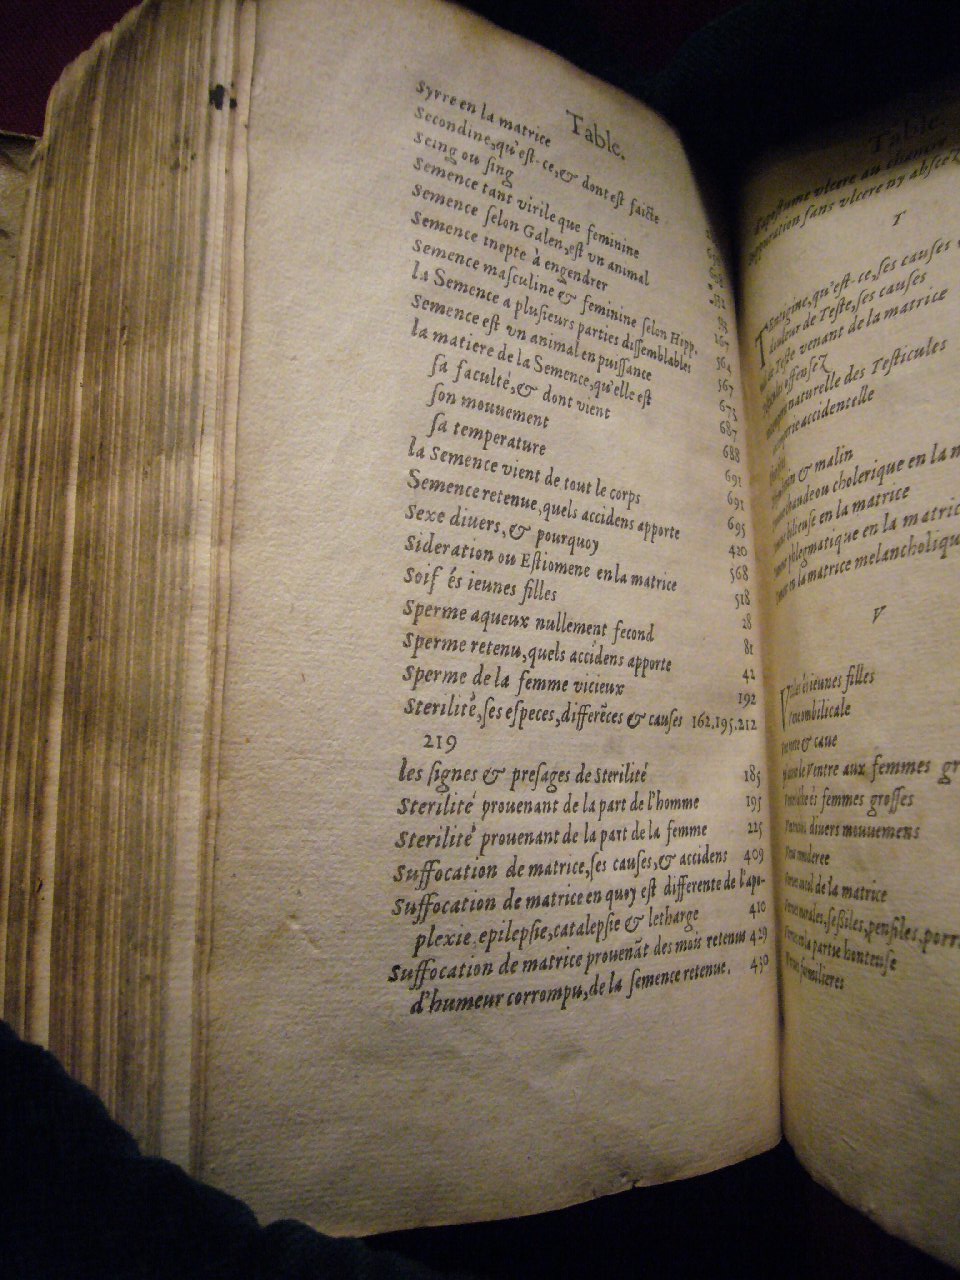 Table.
Syrre en la matrice
Secondine, qu'est-ce, & dont est faicte
Seing ou sing
Semence tant virile que feminine
Semence selon Galen, est un animal
Semence inepte à engendrer
Semence masculine & feminine selon Hipp. 167
la Semence a plusieurs parties dissemblables 564
Semence est un animal en puissance 567
la matiere de la Semence, qu'elle est 675
sa faculté, & dont vient 687
son mouuement 688
sa temperature 691
la Semence vient de tout le corps 691
Semence retenue, quels accidens apporte 695
Sexe diuers, & pourquoy 420
Sideration ou Estiomene en la matrice 568
Soif és ieunes filles 518
Sperme aqueux nullement fecond 28
Sperme retenu, quels accidens apporte 81
Sperme de la femme vicieux 42
192
Sterilité, ses especes, differẽces & causes 162.195.212
219
les signes & presages de Sterilité 185
Sterilité prouenant de la part de l'homme 195
Sterilité prouenant de la part de la femme 225
Suffocation de matrice, ses causes, & accidens 409
Suffocation de matrice en quoy est differente de l'apo-
plexie, epilepsie, catalepsie & letharge 410
Suffocation de matrice prouenãt des mois retenus 429
d'humeur corrompu, de la semence retenue. 430
Table
vlcere au
sans vlcere ny
T
qu'est-ce, ses causes
douleur de Teste, ses causes
Teste venant de la matrice
naturelle des Testicules
accidentelle
& malin
chaude ou cholerique en la
bilieuse en la matrice
phlegmatique en la matric
en la matrice melancholiqu
V
és ieunes filles
& caue
Ventre aux femmes gr
és femmes grosses
diuers mouuemens
de la matrice
sessiles, pensiles, porr
en la partie honteuse
familieres